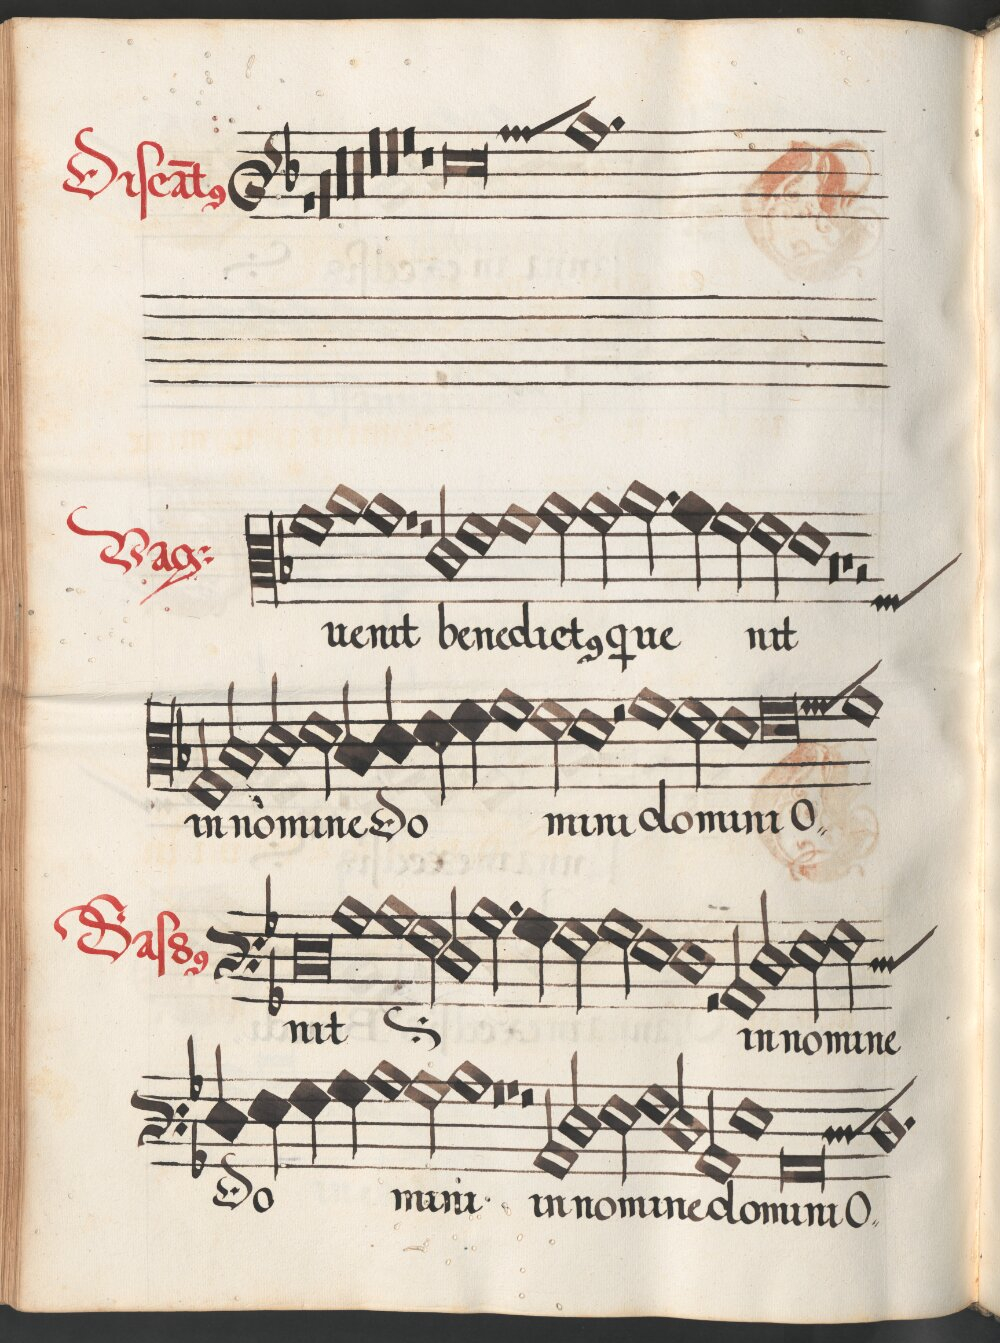 Discāt9
Vag:
uenit benedict9 que nit
in nomine Do mini domini O
Bass9
nit in nomine
Do mini in nomine domini O